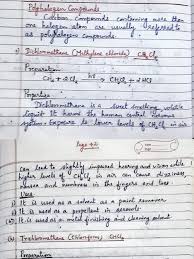 Polyhalogen Compounds
Carbon Compounds containing more than
one halogen atom are usually referred to
as polyhalogen compounds.
Dichloromethane (Methylene chloride) CH2Cl2
Preparation
CH4 + 2Cl2 → CH2Cl2 + 2HCl
Properties
Dichloromethane is a sweet smelling, volatile
liquid. It harms the human central nervous
system. Exposure to lower levels of CH2Cl2 in air
can lead to slightly impaired hearing and vision while
higher levels of CH2Cl2 in air can cause dizziness,
nausea and numbness in the fingers and toes.
Uses
i) It is used as a solvent as a paint remover.
ii) It is used as a propellent in aerosols.
It is used as a metal finishing and cleaning solvent
Trichloromethane (Chloroform) CHCl3
Preparation